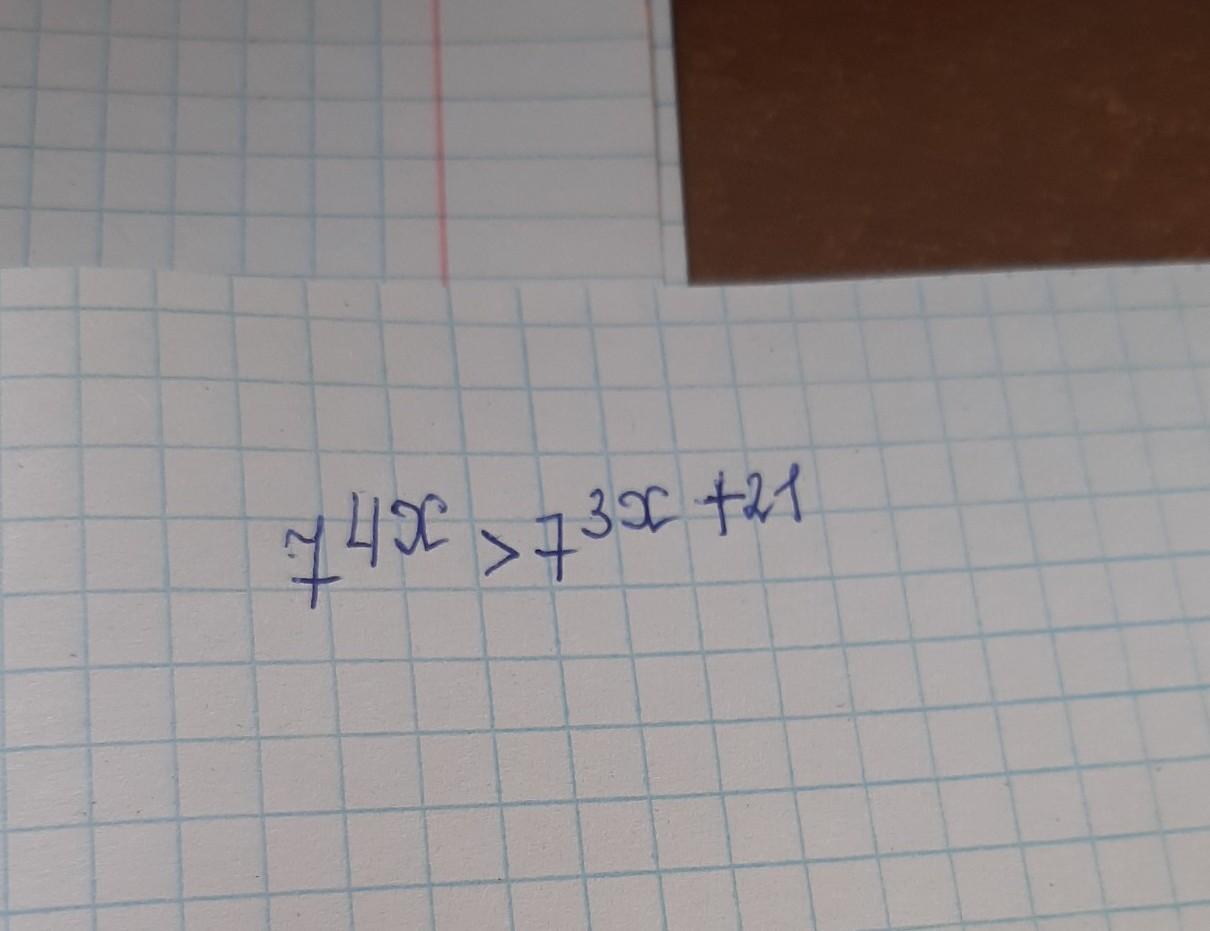 7^{4x} > 7^{3x+21}